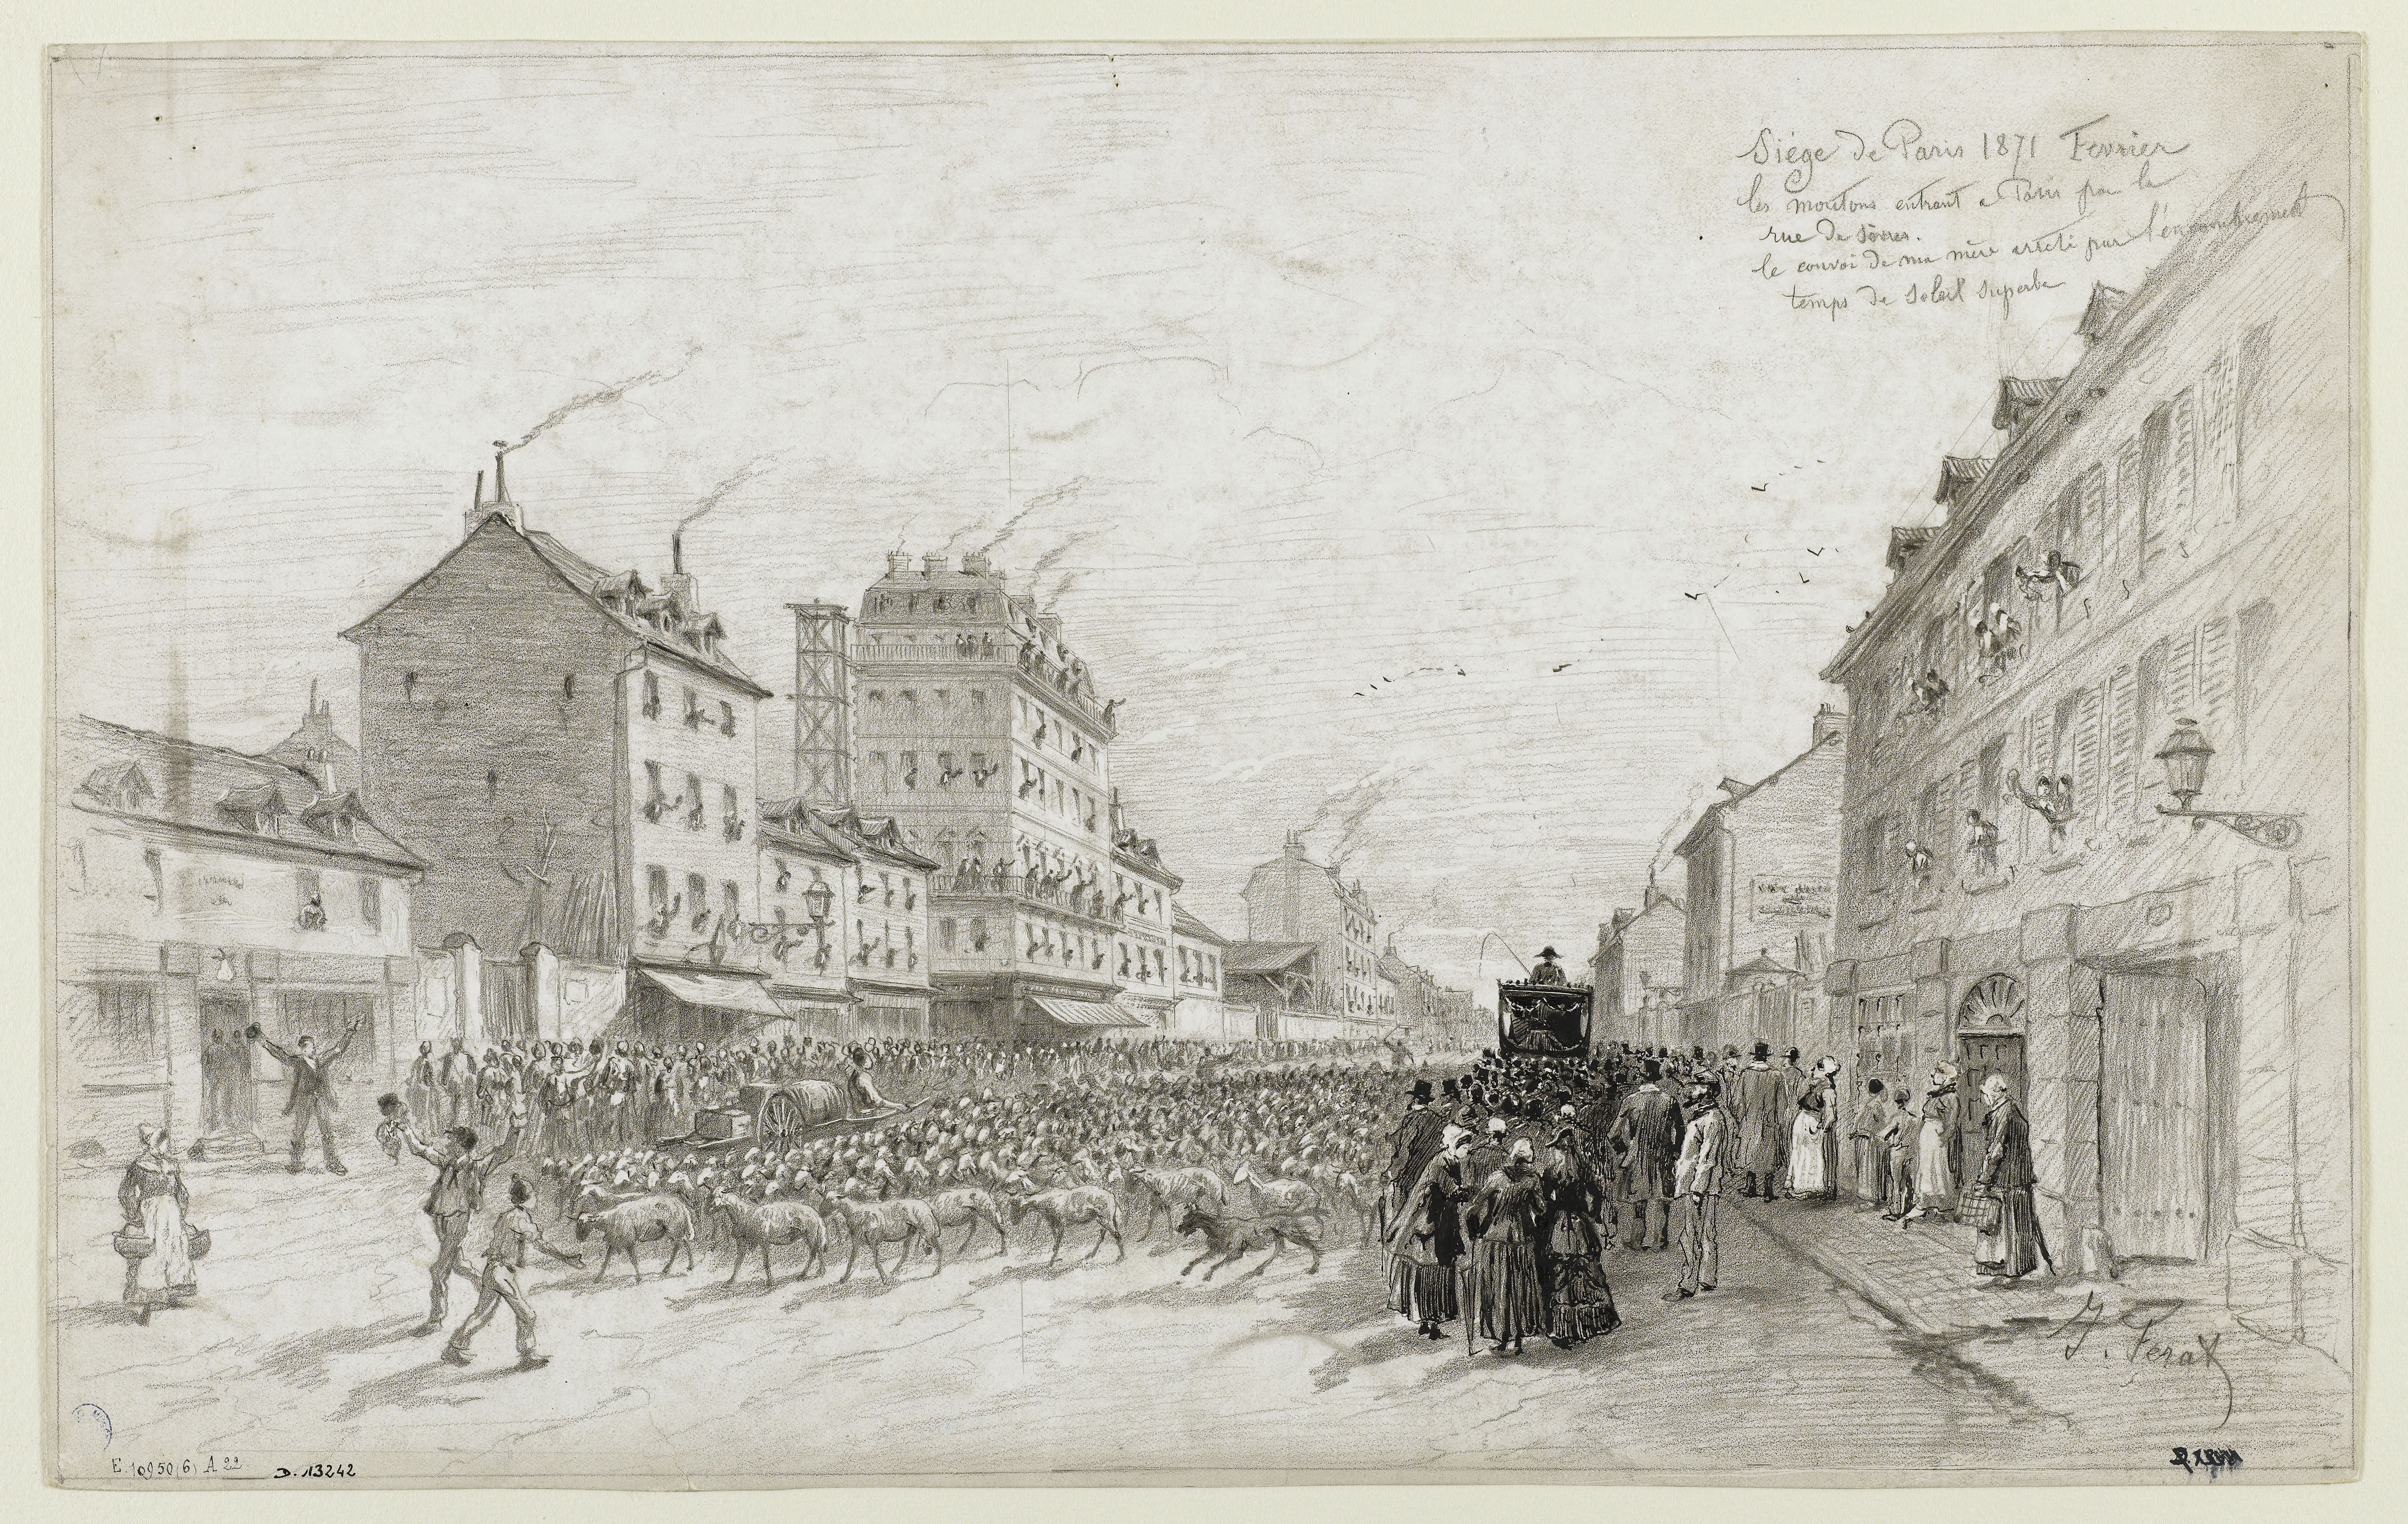 Siége de Paris 1871 Fevrier
les moutons entrant a Paris par la
rue de Sèvres.
le convoi de ma mère arreté par l'encombrement
temps de soleil superbe
J. Ferat
E. 10950 (6) A 22 D. 13242